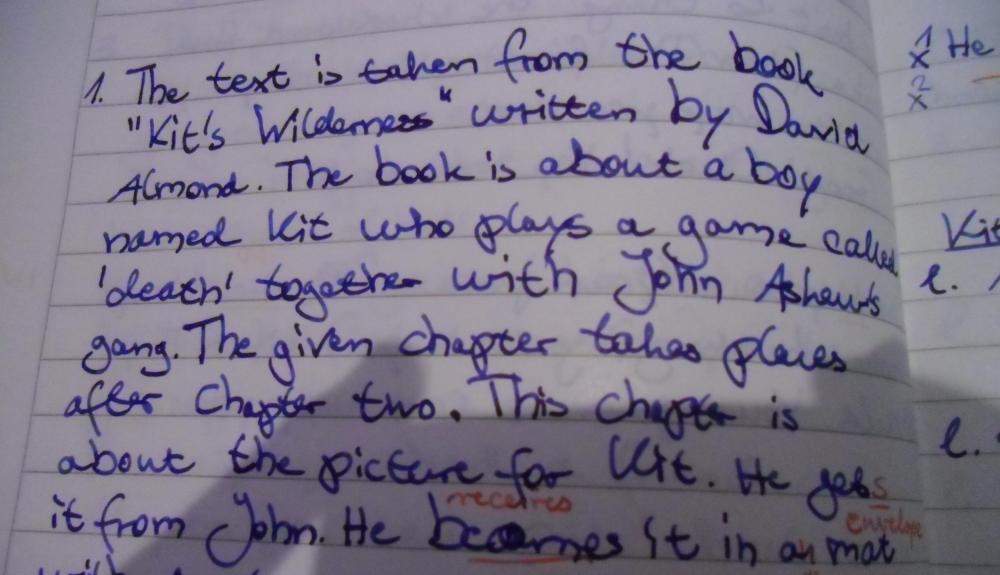 1. The text is taken from the book
"Kit's Wilderness" written by David
Almond. The book is about a boy
named Kit who plays a game called
'death' together with John Askew's
gang. The given chapter takes places
after Chapter two. This chapter is
about the picture for Kit. He gets
receives
envelope
it from John. He becomes it in an mat
1 He
x
2
x
Kit
l.
l.